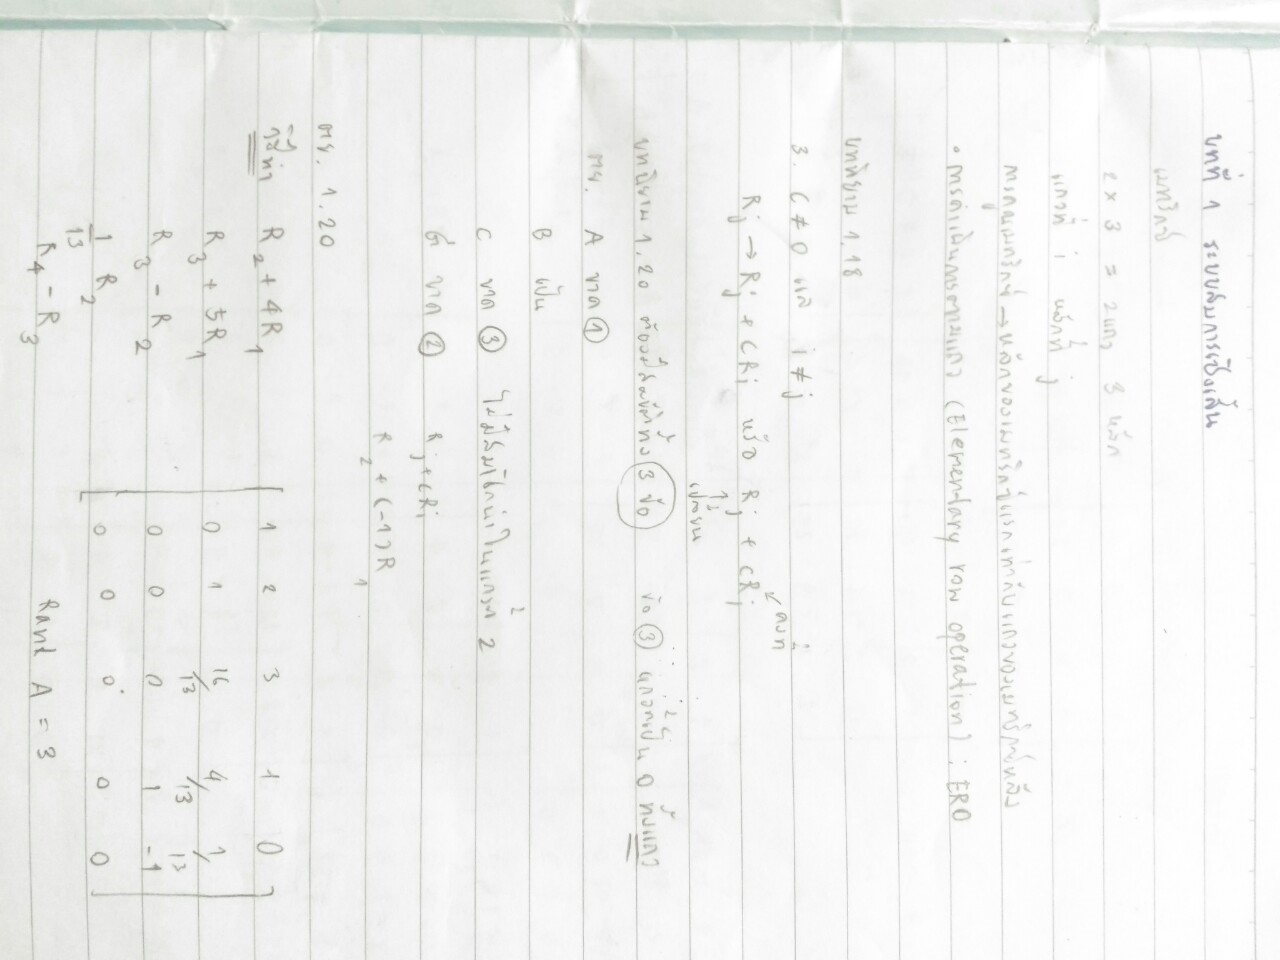 บทที่ 1 ระบบสมการเชิงเส้น
เมทริกซ์
2 × 3 = 2 แถว 3 หลัก
แถวที่ i หลักที่ j
การคูณเมทริกซ์ → หลักของเมทริกซ์แรกเท่ากับแถวของเมทริกซ์หลัง
• การดำเนินการตามแถว (Elementary row operation) : ERO
บทนิยาม 1.18
3. C ≠ 0 และ i ≠ j
คงที่
Rj → Rj + CRi หรือ Rj + CRi
↑
เปลี่ยน
บทนิยาม 1.20 ต้องมีสมบัติทั้ง 3 ข้อ ข้อ ③ แถวที่เป็น 0 ทั้งแถว
ตย. A ขาด ①
B เป็น
C ขาด ③ ไม่มีสมาชิกนำในแถวที่ 2
G ขาด ② Rj + CRi
R2 + (-1)R1
ตย. 1.20
วิธีทำ R2 + 4R1 [ 1 2 3 1 0
R3 + 5R1 0 1 16/13 4/13 1/13
R3 - R2 0 0 0 1 -1
1/13 R2 0 0 0 0 0 ]
R4 - R3 Rank A = 3